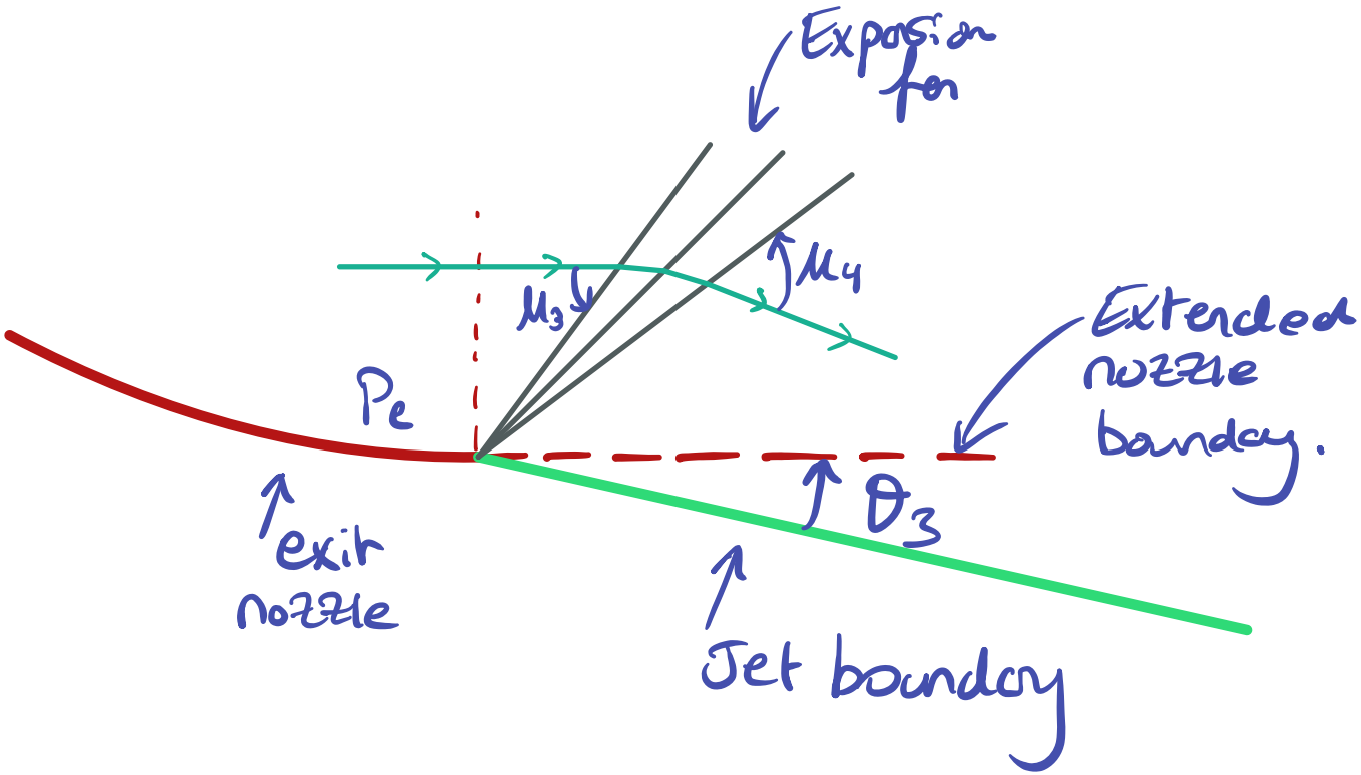 Expansion
fan
μ₃
μ₄
Pe
Extended
nozzle
bounday.
θ₃
exit
nozzle
Jet bounday